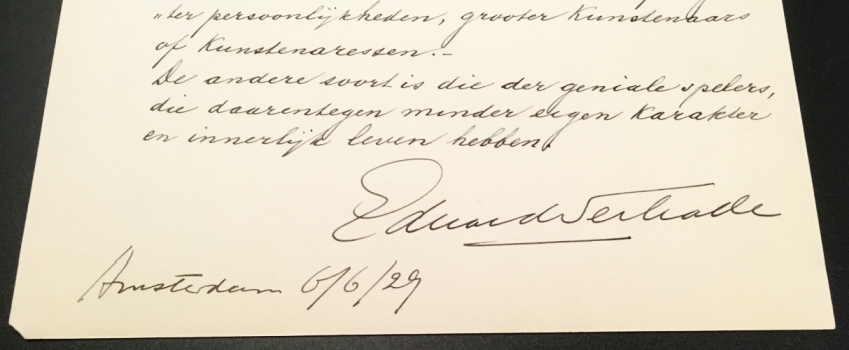 "ter persoonlijkheden, grooter Kunstenaars
of Kunstenaressen.-
De andere soort is die der geniale spelers,
die daarentegen minder eigen Karakter
en innerlijk leven hebben.
Eduard Verkade
Amsterdam 6/6/29